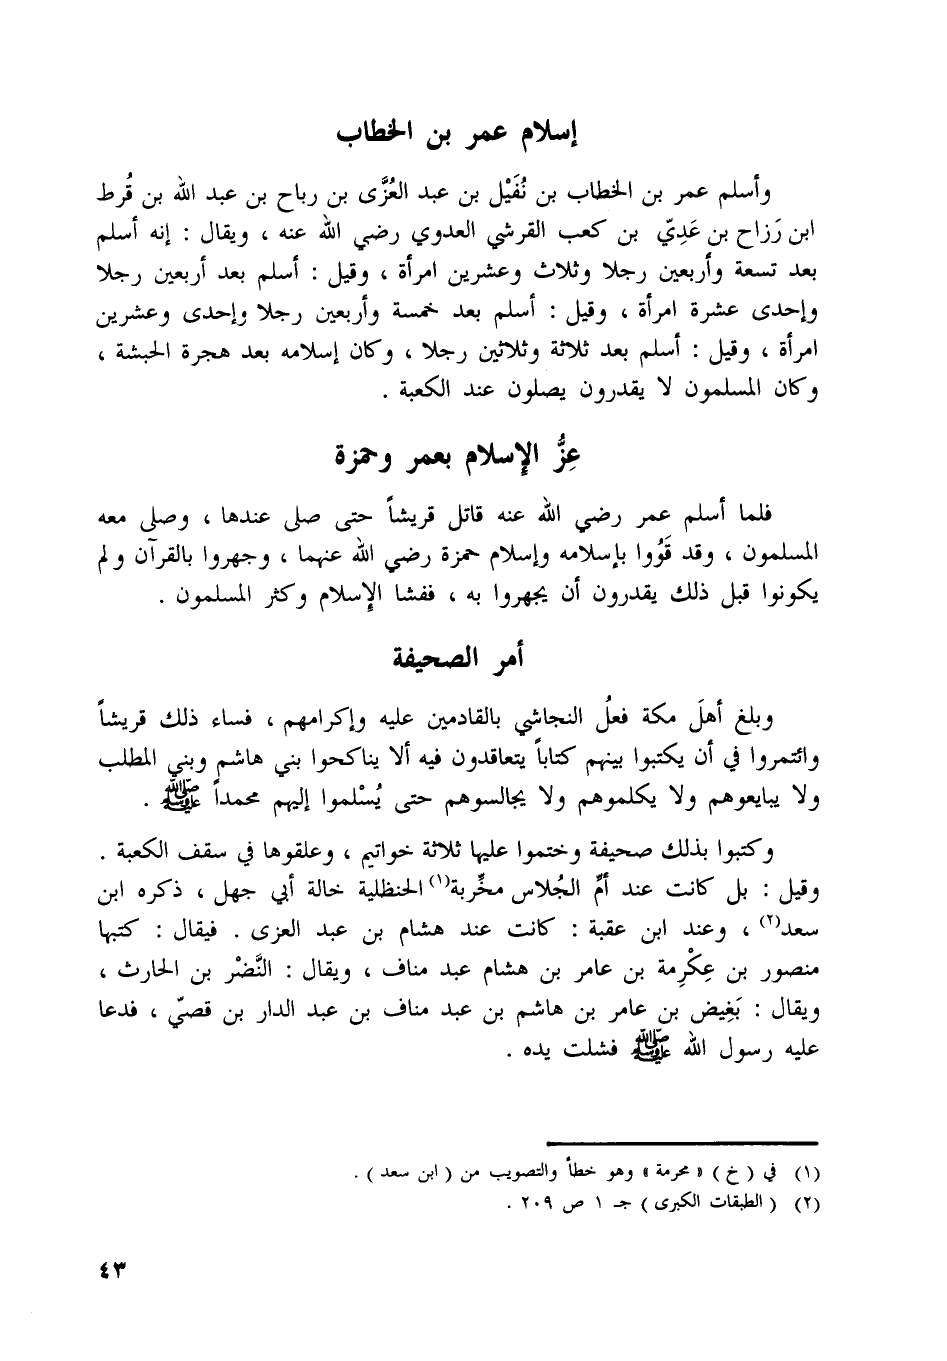 إسلام عمر بن الخطاب
وأسلم عمر بن الخطاب بن نُفَيْل بن عبد العُزَّى بن رباح بن عبد الله بن قُرط
ابن رَزاح بن عَدِيّ بن كعب القرشي العدوي رضي الله عنه ، ويقال : إنه أسلم
بعد تسعة وأربعين رجلا وثلاث وعشرين امرأة ، وقيل : أسلم بعد أربعين رجلا
وإحدى عشرة امرأة ، وقيل : أسلم بعد خمسة وأربعين رجلا وإحدى وعشرين
امرأة ، وقيل : أسلم بعد ثلاثة وثلاثين رجلا ، وكان إسلامه بعد هجرة الحبشة ،
وكان المسلمون لا يقدرون يصلون عند الكعبة .
عِزُّ الإسلام بعمر وحمزة
فلما أسلم عمر رضي الله عنه قاتل قريشاً حتى صلى عندها ، وصلى معه
المسلمون ، وقد قَوُوا بإسلامه وإسلام حمزة رضي الله عنهما ، وجهروا بالقرآن ولم
يكونوا قبل ذلك يقدرون أن يجهروا به ، ففشا الإسلام وكثر المسلمون .
أمر الصحيفة
وبلغ أهلَ مكة فعلُ النجاشي بالقادمين عليه وإكرامهم ، فساء ذلك قريشاً
وائتمروا في أن يكتبوا بينهم كتاباً يتعاقدون فيه ألا يناكحوا بني هاشم وبني المطلب
ولا يبايعوهم ولا يكلموهم ولا يجالسوهم حتى يُسْلموا إليهم محمداً ﷺ .
وكتبوا بذلك صحيفة وختموا عليها ثلاثة خواتيم ، وعلقوها في سقف الكعبة .
وقيل : بل كانت عند أمّ الجُلاس مخرِّبة(١) الحنظلية خالة أبي جهل ، ذكره ابن
سعد(٢) ، وعند ابن عقبة : كانت عند هشام بن عبد العزى . فيقال : كتبها
منصور بن عِكْرِمة بن عامر بن هشام عبد مناف ، ويقال : النَّضْر بن الحارث ،
ويقال : بَغِيض بن عامر بن هاشم بن عبد مناف بن عبد الدار بن قصيّ ، فدعا
عليه رسول الله ﷺ فشلت يده .
(١) في ( خ ) « محرمة » وهو خطأ والتصويب من ( ابن سعد ) .
(٢) ( الطبقات الكبرى ) جـ ١ ص ٢٠٩ .
٤٣